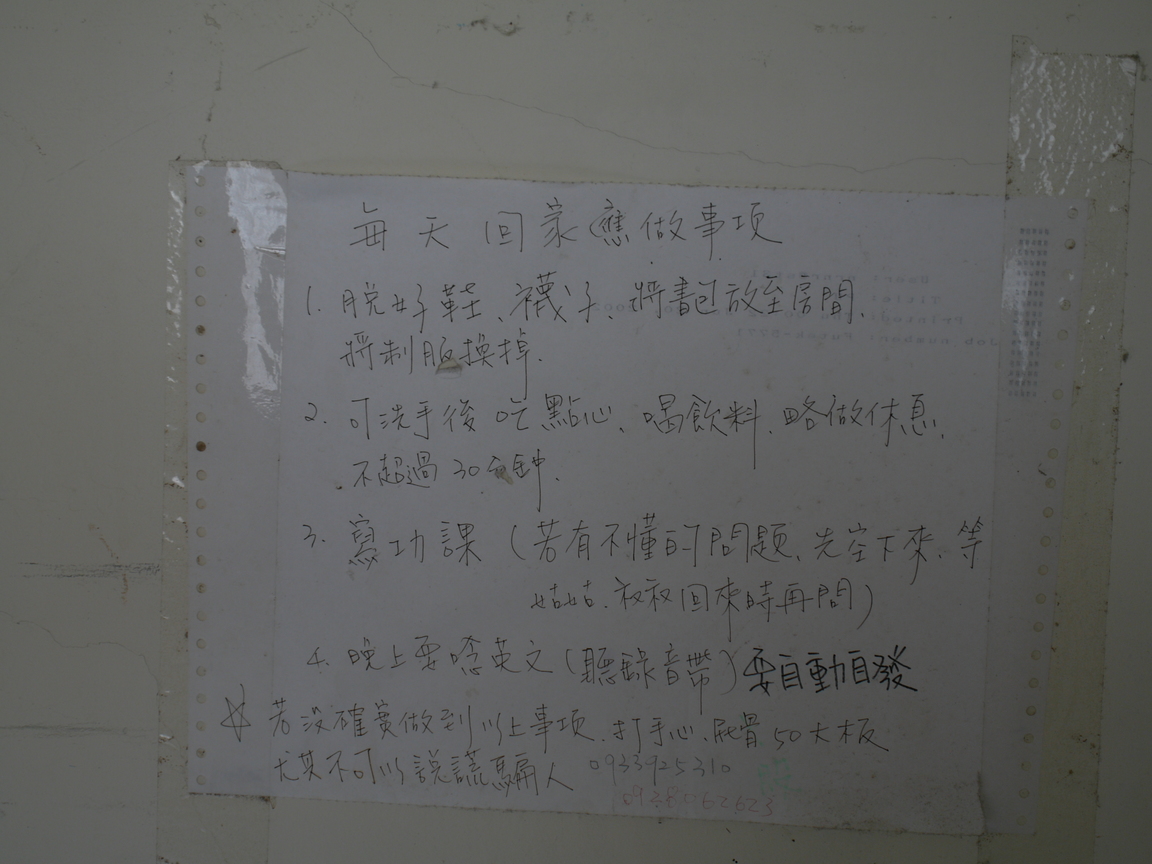 每天回家應做事項
1. 脫好鞋、襪子、將書包放至房間、
將制服換掉.
2. 可洗手後吃點心、喝飲料、略做休息、
不超過30分鐘.
3. 寫功課(若有不懂的問題、先空下來、等
姑姑、叔叔回來時再問)
4. 晚上要唸英文(聽錄音帶)要自動自發
☆若沒確實做到以上事項、打手心、屁骨50大板
尤其不可以說謊騙人 0933925310
0938062623